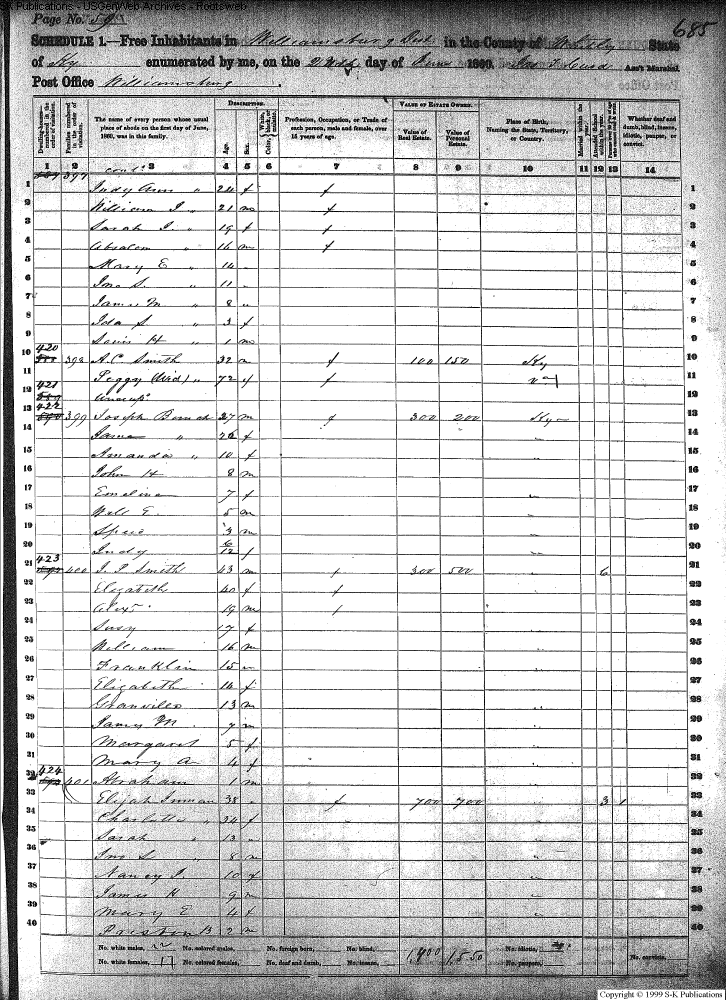 SK Publications - USGenWeb Archives - Rootsweb
Page No. 59
685
SCHEDULE 1.—Free Inhabitants in Williamsburg Dist in the County of Whitly State
of Ky enumerated by me, on the day of June 1860. Ass't Marshal
Post Office Williamsburg
Dwelling-houses—numbered in the order of visitation.
Families numbered in the order of visitation.
The name of every person whose usual place of abode on the first day of June, 1860, was in this family.
DESCRIPTION.
Age.
Sex.
Color, White, black, or mulatto.
Profession, Occupation, or Trade of each person, male and female, over 15 years of age.
VALUE OF ESTATE OWNED.
Value of Real Estate.
Value of Personal Estate.
Place of Birth, Naming the State, Territory, or Country.
Married within the year.
Whether deaf and dumb, blind, insane, idiotic, pauper, or convict.
1 2 3 4 5 6 7 8 9 10 11 12 13 14
397 cont'd
1 Judy Ann " 24 f 1
2 William J. " 21 m 2
3 Sarah J. " 19 f 3
4 Absalom " 16 m 4
5 Mary E " 14 5
6 Jno S. " 11 6
7 James M " 8 " 7
8 Ida S " 3 f 8
9 Lewis H " 1 m 9
10 420 398 A. C. Smith 32 m 100 150 Ky 10
11 Peggy (Wid) " 72 f 11
12 421 Unocup'd 12
13 422 399 Joseph 27 m 300 200 Ky 13
14 " 26 f " 14
15 Amanda " 10 f " 15
16 John H 8 m 16
17 Emeline 7 f " 17
18 Will E. 5 m " 18
19 3 m " 19
20 Judy 6/12 f " 20
21 423 400 J. P. Smith 43 m 300 500 " 6 21
22 Elizabeth 40 f 22
23 Alex 19 m 23
24 Susy 17 f 24
25 William 16 m 25
26 Franklin 15 26
27 Elizabeth 14 f 27
28 Granville 13 m 28
29 James M. 7 m 29
30 Margaret 5 f 30
31 Mary A 4 f 31
32 424 401 Abraham 1 m 32
33 Elijah Inman 38 700 700 3 1 33
34 Charlotte " 34 f 34
35 Sarah " 13 " 35
36 Jno S " 8 m 36
37 Nancy J. 10 f 37
38 James H 9 m 38
39 Mary E 4 f 39
40 Preston B 2 m 40
No. white males, No. colored males, No. foreign born, No. blind, 1,400 1,550 No. idiotic,
No. white females, 17 No. colored females, No. deaf and dumb, No. insane, No. paupers, No. convicts,
Copyright © 1999 S-K Publications